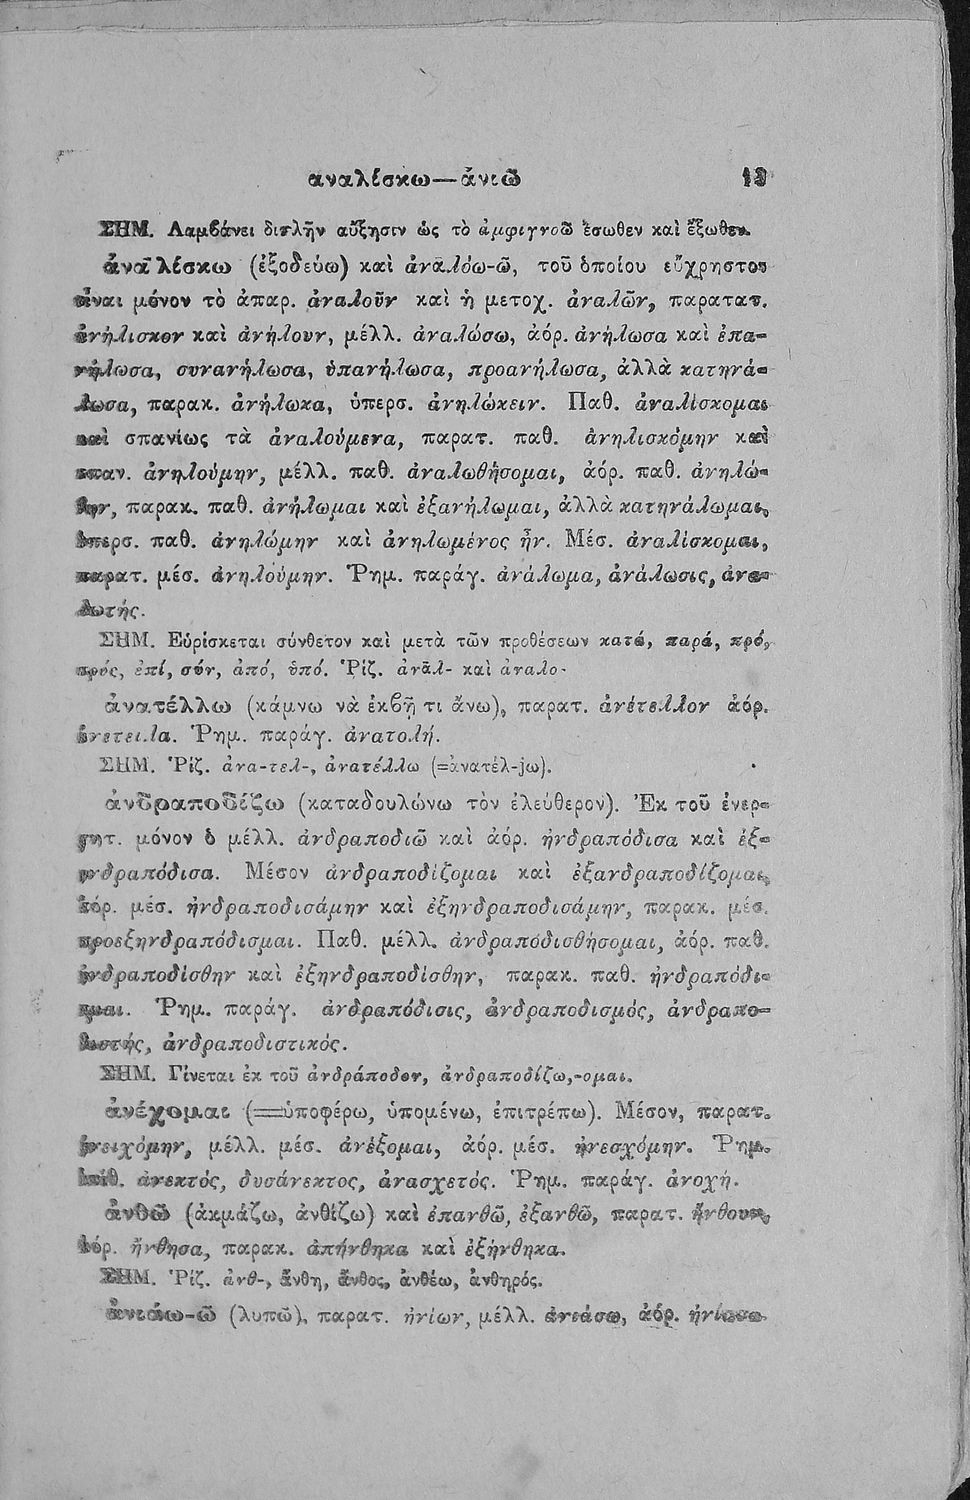 αναλίσκω—ἀνιῶ 13
ΣΗΜ. Λαμβάνει διπλῆν αὔξησιν ὡς τὸ ἀμφιγνοῶ ἔσωθεν καὶ ἔξωθεν.
ἀναλίσκω (ἐξοδεύω) καὶ ἀναλόω-ῶ, τοῦ ὁποίου εὔχρηστον
εἶναι μόνον τὸ ἀπαρ. ἀναλοῦν καὶ ἡ μετοχ. ἀναλῶν, παρατατ.
ἀνήλισκον καὶ ἀνήλουν, μέλλ. ἀναλώσω, ἀόρ. ἀνήλωσα καὶ ἐπα-
νήλωσα, συνανήλωσα, ὑπανήλωσα, προανήλωσα, ἀλλὰ κατηνά-
λωσα, παρακ. ἀνήλωκα, ὑπερσ. ἀνηλώκειν. Παθ. ἀναλίσκομαι
καὶ σπανίως τὰ ἀναλούμενα, παρατ. παθ. ἀνηλισκόμην καὶ
σπαν. ἀνηλούμην, μέλλ. παθ. ἀναλωθήσομαι, ἀόρ. παθ. ἀνηλώ-
θην, παρακ. παθ. ἀνήλωμαι καὶ ἐξανήλωμαι, ἀλλὰ κατηνάλωμαι,
ὑπερσ. παθ. ἀνηλώμην καὶ ἀνηλωμένος ἦν. Μέσ. ἀναλίσκομαι,
παρατ. μέσ. ἀνηλούμην. Ῥημ. παράγ. ἀνάλωμα, ἀνάλωσις, ἀνα-
λωτής.
ΣΗΜ. Εὑρίσκεται σύνθετον καὶ μετὰ τῶν προθέσεων κατά, παρά, πρό,
πρός, ἐπί, σύν, ἀπό, ὑπό. Ῥίζ. ἀνᾱλ- καὶ ἀναλο-
ἀνατέλλω (κάμνω νὰ ἐκβῇ τι ἄνω), παρατ. ἀνέτελλον ἀόρ.
ἀνέτειλα. Ῥημ. παράγ. ἀνατολή.
ΣΗΜ. Ῥίζ. ἀνα-τελ-, ἀνατέλλω (=ἀνατέλ-jω).
ἀνδραποδίζω (καταδουλώνω τὸν ἐλεύθερον). Ἐκ τοῦ ἐνερ-
γητ. μόνον ὁ μέλλ. ἀνδραποδιῶ καὶ ἀόρ. ἠνδραπόδισα καὶ ἐξ-
ηνδραπόδισα. Μέσον ἀνδραποδίζομαι καὶ ἐξανδραποδίζομαι,
ἀόρ. μέσ. ἠνδραποδισάμην καὶ ἐξηνδραποδισάμην, παρακ. μέσ.
προεξηνδραπόδισμαι. Παθ. μέλλ. ἀνδραποδισθήσομαι, ἀόρ. παθ.
ἠνδραποδίσθην καὶ ἐξηνδραποδίσθην, παρακ. παθ. ἠνδραπόδι-
σμαι. Ῥημ. παράγ. ἀνδραπόδισις, ἀνδραποδισμός, ἀνδραπο-
διστής, ἀνδραποδιστικός.
ΣΗΜ. Γίνεται ἐκ τοῦ ἀνδράποδον, ἀνδραποδίζω,-ομαι.
ἀνέχομαι (=ὑποφέρω, ὑπομένω, ἐπιτρέπω). Μέσον, παρατ.
ἠνειχόμην, μέλλ. μέσ. ἀνέξομαι, ἀόρ. μέσ. ἠνεσχόμην. Ῥημ.
ἐπίθ. ἀνεκτός, δυσάνεκτος, ἀνασχετός. Ῥημ. παράγ. ἀνοχή.
ἀνθῶ (ἀκμάζω, ἀνθίζω) καὶ ἐπανθῶ, ἐξανθῶ, παρατ. ἤνθουν,
ἀόρ. ἤνθησα, παρακ. ἀπήνθηκα καὶ ἐξήνθηκα.
ΣΗΜ. Ῥίζ. ἀνθ-, ἄνθη, ἄνθος, ἀνθέω, ἀνθηρός.
ἀνιάω-ῶ (λυπῶ), παρατ. ἠνίων, μέλλ. ἀνιάσω, ἀόρ. ἠνίασα